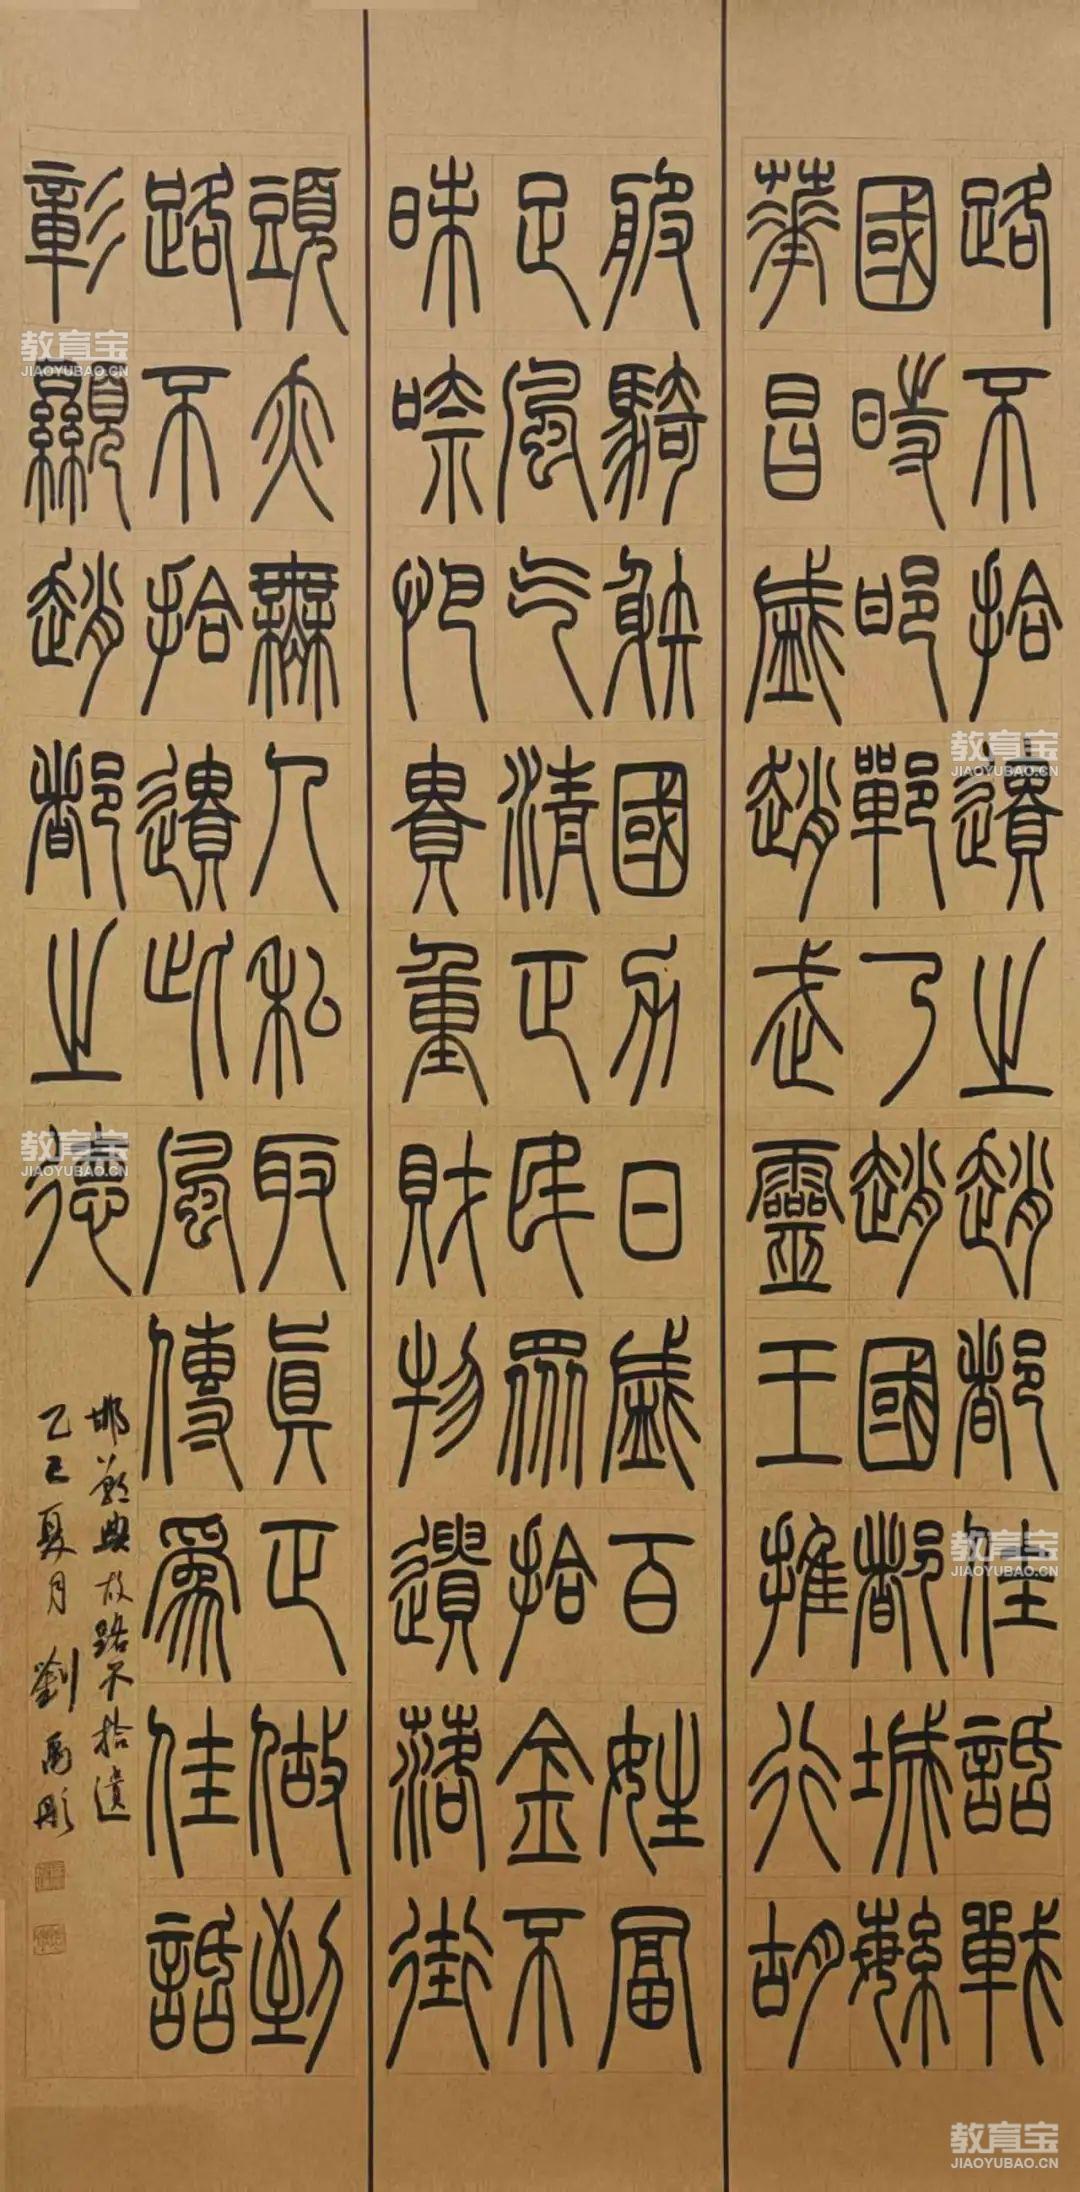 路不拾遺之趙都佳話戰
國時邯鄲乃趙國都城繁
華昌盛趙武靈王推行胡
服騎射國力日盛百姓富
足風气清正民眾拾金不
昧哪怕貴重財物遺落街
頭亦無人私取真正做到
路不拾遺此風傳為佳話
彰顯趙都之德
邯鄲典故路不拾遺
乙巳夏月 劉禹彤
教育宝
JIAOYUBAO.CN
教育宝
JIAOYUBAO.CN
教育宝
JIAOYUBAO.CN
教育宝
JIAOYUBAO.CN
教育宝
JIAOYUBAO.CN